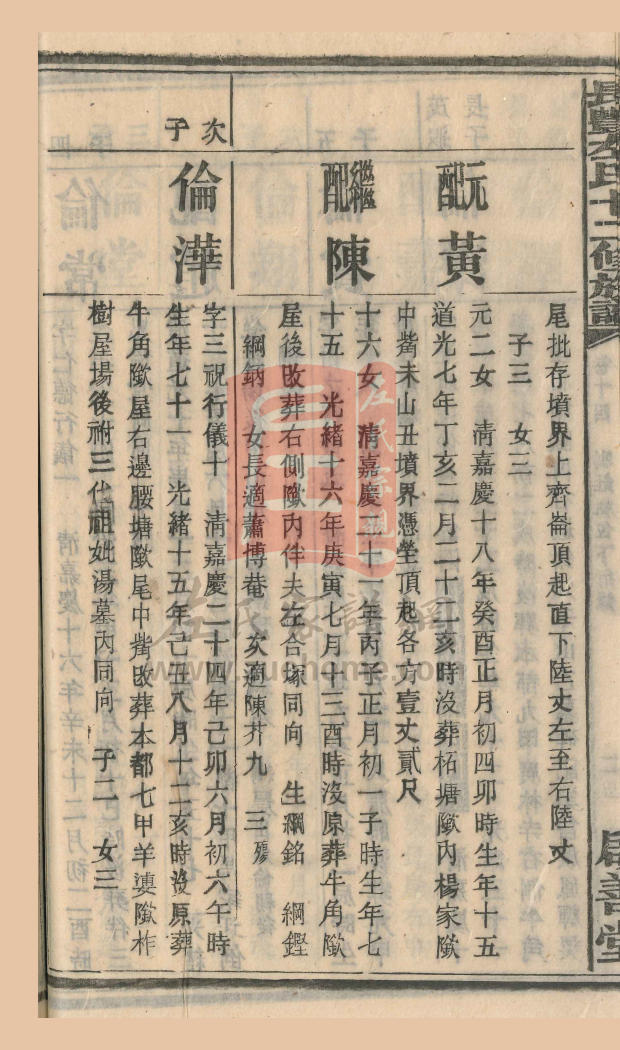 長豐左氏十二修族譜
居善堂
尾批存墳界上齊崙頂起直下陸丈左至右陸丈
子三　女三
元配黃
元二女　清嘉慶十八年癸酉正月初四卯時生年十五
道光七年丁亥二月二十二亥時沒葬柘塘𡑞內楊家𡑞
中觜未山丑墳界憑塋頂起各方壹丈貳尺
繼配陳
十六女　清嘉慶二十一年丙子正月初一子時生年七
十五　光緒十六年庚寅七月十三酉時沒原葬牛角𡑞
屋後改葬右側𡑞內伴夫左合塚同向　生綱銘　綱鏗
綱鈵　女長適蕭博菴　次適陳芥九　三殤
次子
倫澕
字三祝行儀十　清嘉慶二十四年己卯六月初六午時
生年七十一年光緒十五年己丑八月十二亥時沒原葬
牛角𡑞屋右邊腰塘𡑞尾中觜改葬本都七甲羊𡑞柞
樹屋場後祔三代祖妣湯墓內同向　子二　女三
左氏宗親
左氏家譜網
www.zuohome.com